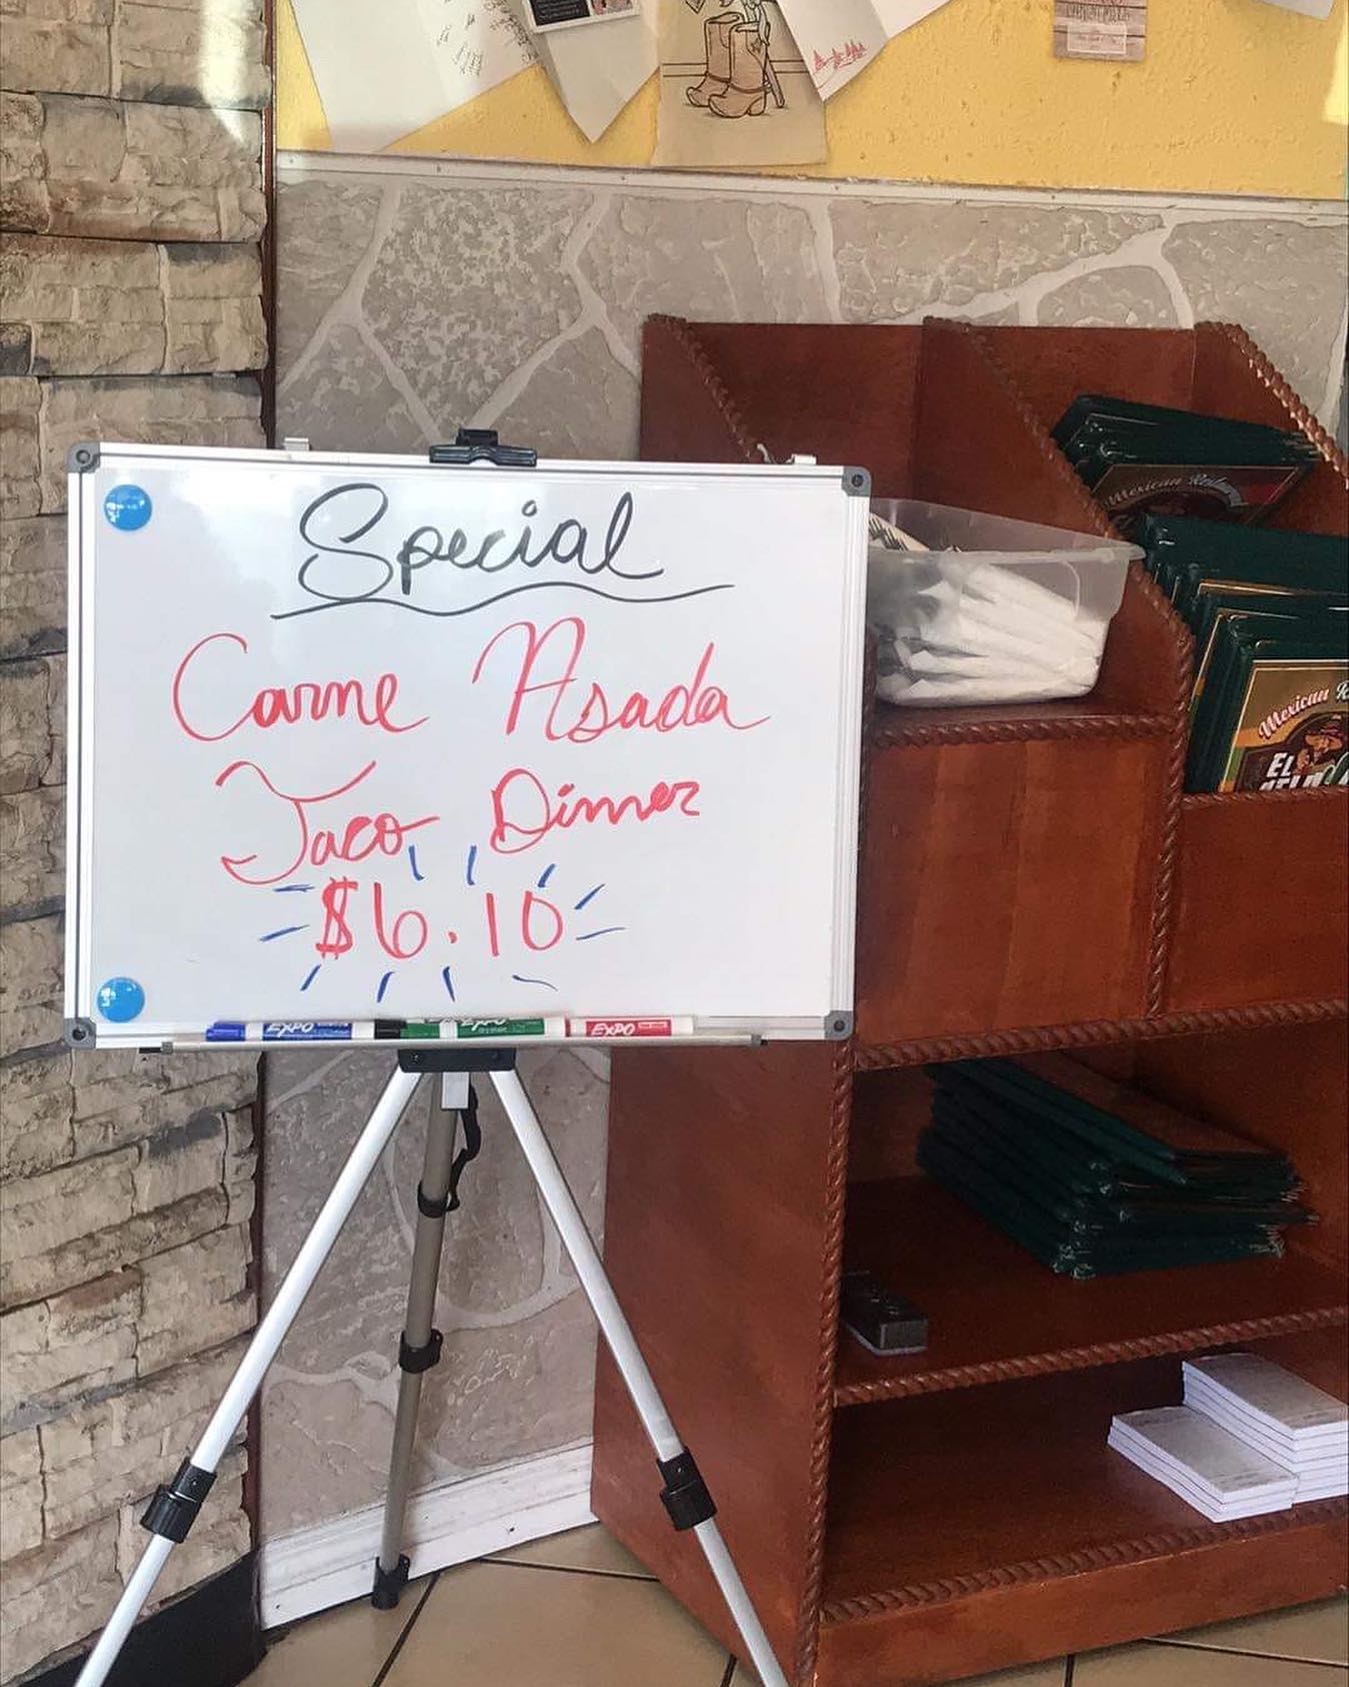 Special
Carne Asada
Taco Dinner
$6.10
EXPO
EXPO
EXPO
Mexican
Mexican
EL